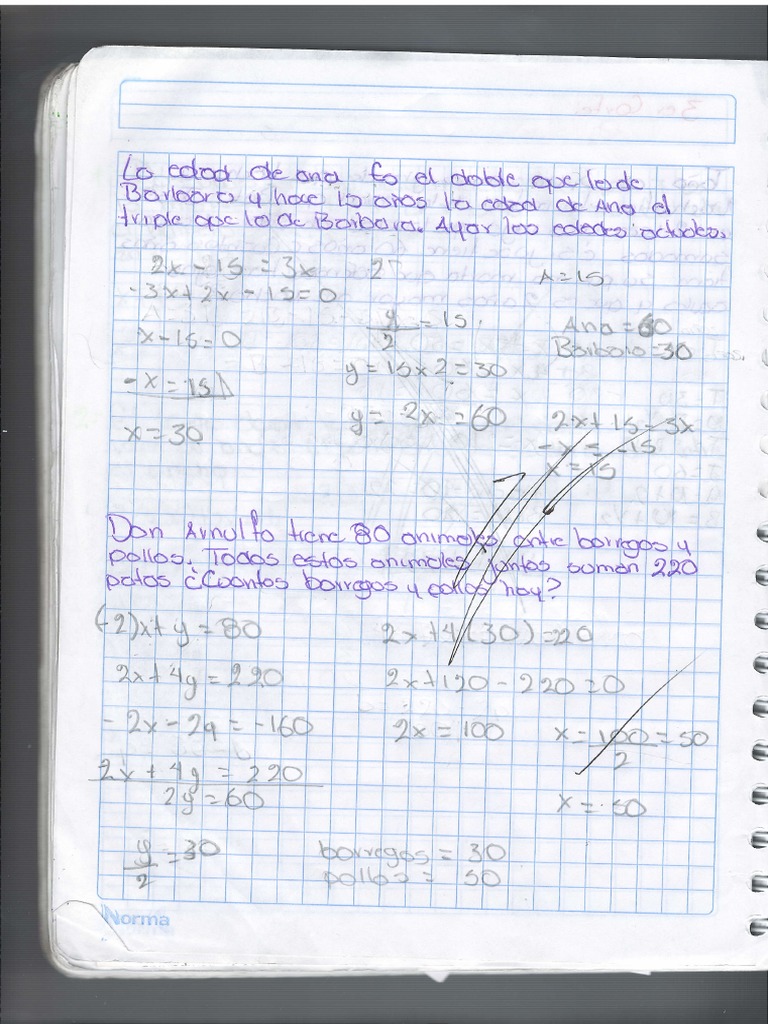 La edad de ana Es el doble que la de
Barbara y hace 15 años la edad de Ana el
triple que la de Barbara. Ayar las edades actuales.
2x - 15 = 3x
2
A = 15
-3x + 2x - 15 = 0
y/2 = 15
Ana = 60
x - 15 = 0
Barbara = 30
y = 15 x 2 = 30
-x = 15
y = 2x = 60
2x + 15 = 3x
x = 30
-x = -15
x = 15
Don Arnulfo tiene 80 animales entre borregos y
pollos. Todos estos animales juntos suman 220
patas ¿Cuantos borregos y pollos hay?
(-2)x + y = 80
2x + 4(30) = 20
2x + 4y = 220
2x + 120 - 220 = 0
-2x - 2y = -160
2x = 100
x = 100/2 = 50
2x + 4y = 220
2y = 60
x = 50
y/2 = 30
borregos = 30
pollos = 50
Norma